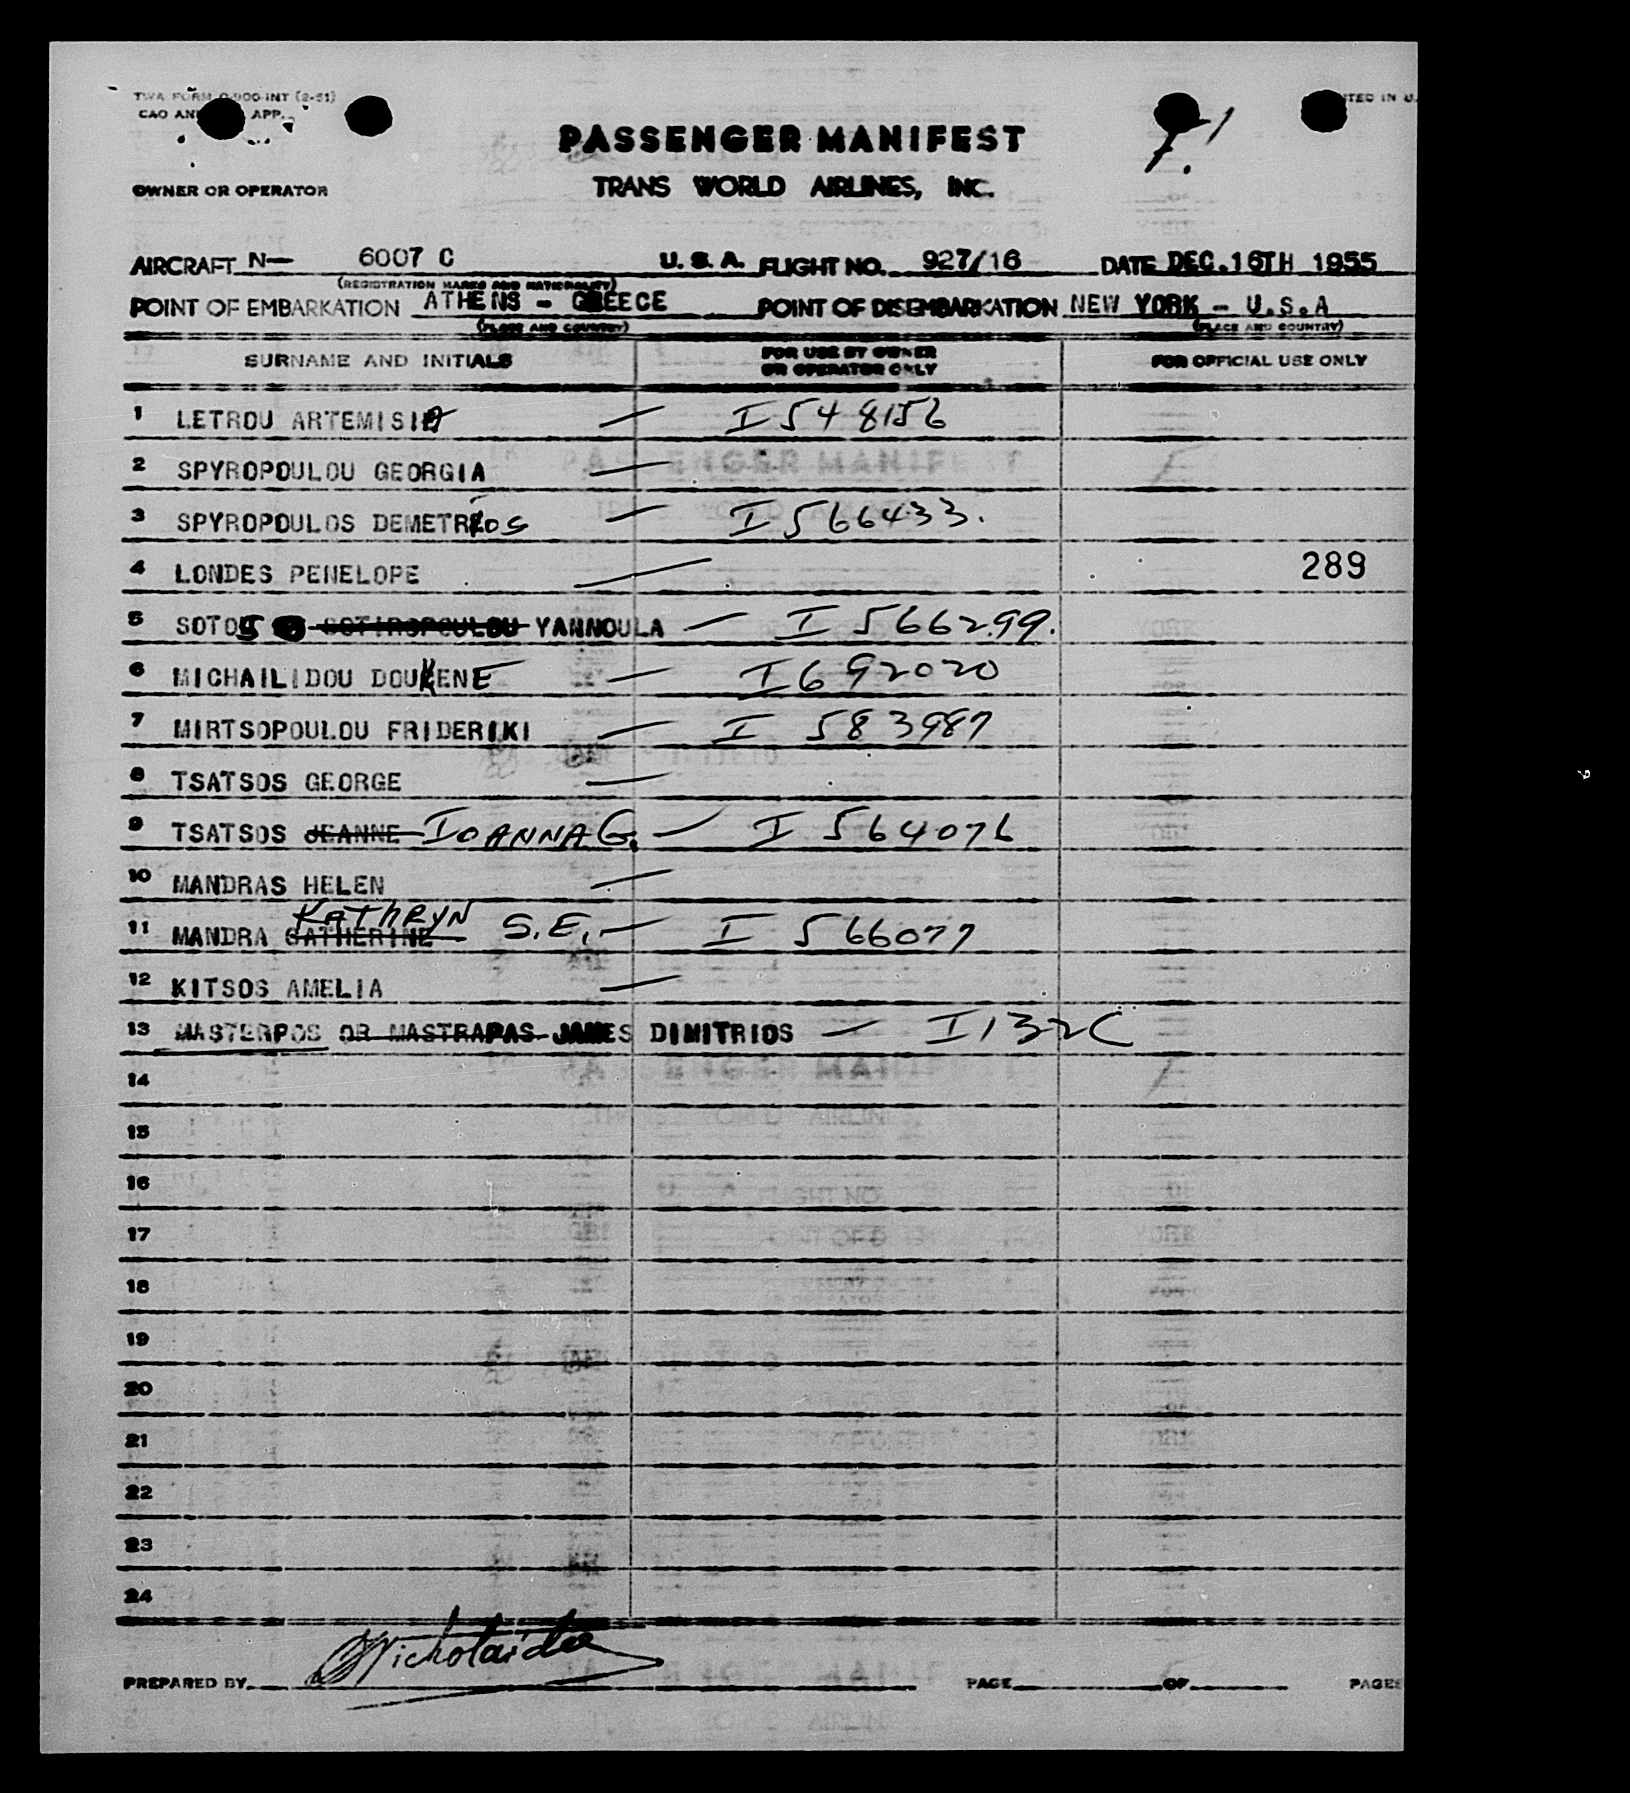 TWA FORM 0-900-INT (2-51)
CAO AN APP.
TED IN U.
F. 1
PASSENGER MANIFEST
OWNER OR OPERATOR
TRANS WORLD AIRLINES, INC.
AIRCRAFT N— 6007 C U. S. A. FLIGHT NO. 927/16 DATE DEC.16TH 1955
(REGISTRATION MARKS AND NATIONALITY)
POINT OF EMBARKATION ATHENS - GREECE POINT OF DISEMBARKATION NEW YORK - U.S.A
(PLACE AND COUNTRY) (PLACE AND COUNTRY)
SURNAME AND INITIALS FOR USE BY OWNER OR OPERATOR ONLY FOR OFFICIAL USE ONLY
1 LETROU ARTEMISIA — I 548156
2 SPYROPOULOU GEORGIA —
3 SPYROPOULOS DEMETRIOS — I 566433.
4 LONDES PENELOPE — 289
5 SOTOS SOTIROPOULOU YANNOULA — I 566299.
6 MICHAILIDOU DOUKENE — I 692020
7 MIRTSOPOULOU FRIDERIKI — I 583987
8 TSATSOS GEORGE —
9 TSATSOS JEANNE IOANNA G. — I 564076
10 MANDRAS HELEN —
11 MANDRA CATHERINE KATHRYN S.E. — I 566077
12 KITSOS AMELIA —
13 MASTERPOS OR MASTRAPAS JAMES DIMITRIOS — I 132C
14
15
16
17
18
19
20
21
22
23
24
PREPARED BY PAGE OF PAGES